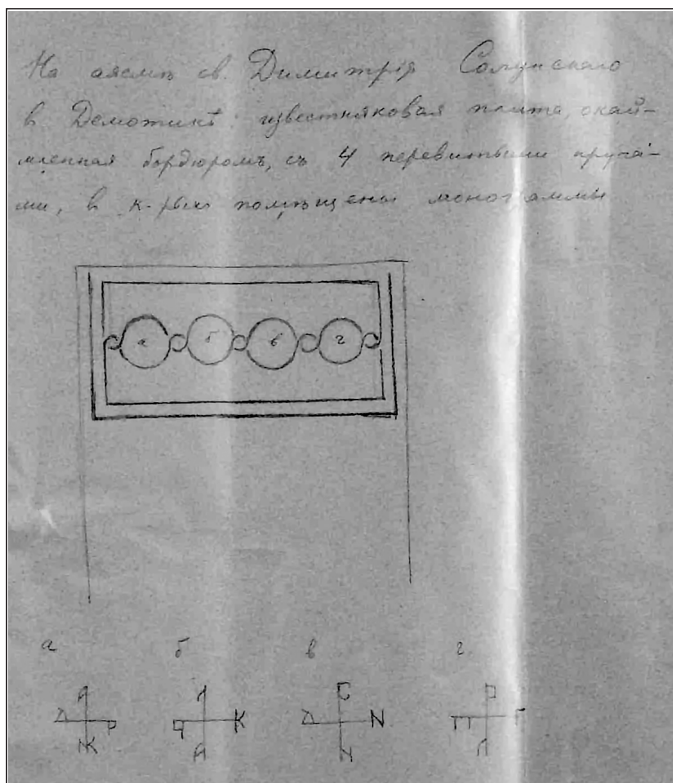 На аязмѣ св. Димитрія Солунскаго
в Демотикѣ известняковая плита, окай-
мленная бордюромъ, съ 4 перевитыми круга-
ми, в к-рыхъ помѣщены монограммы
а б в г
а б в г
Λ Λ С Р
Δ Р Ч К Δ N П Г
Ж А И Λ